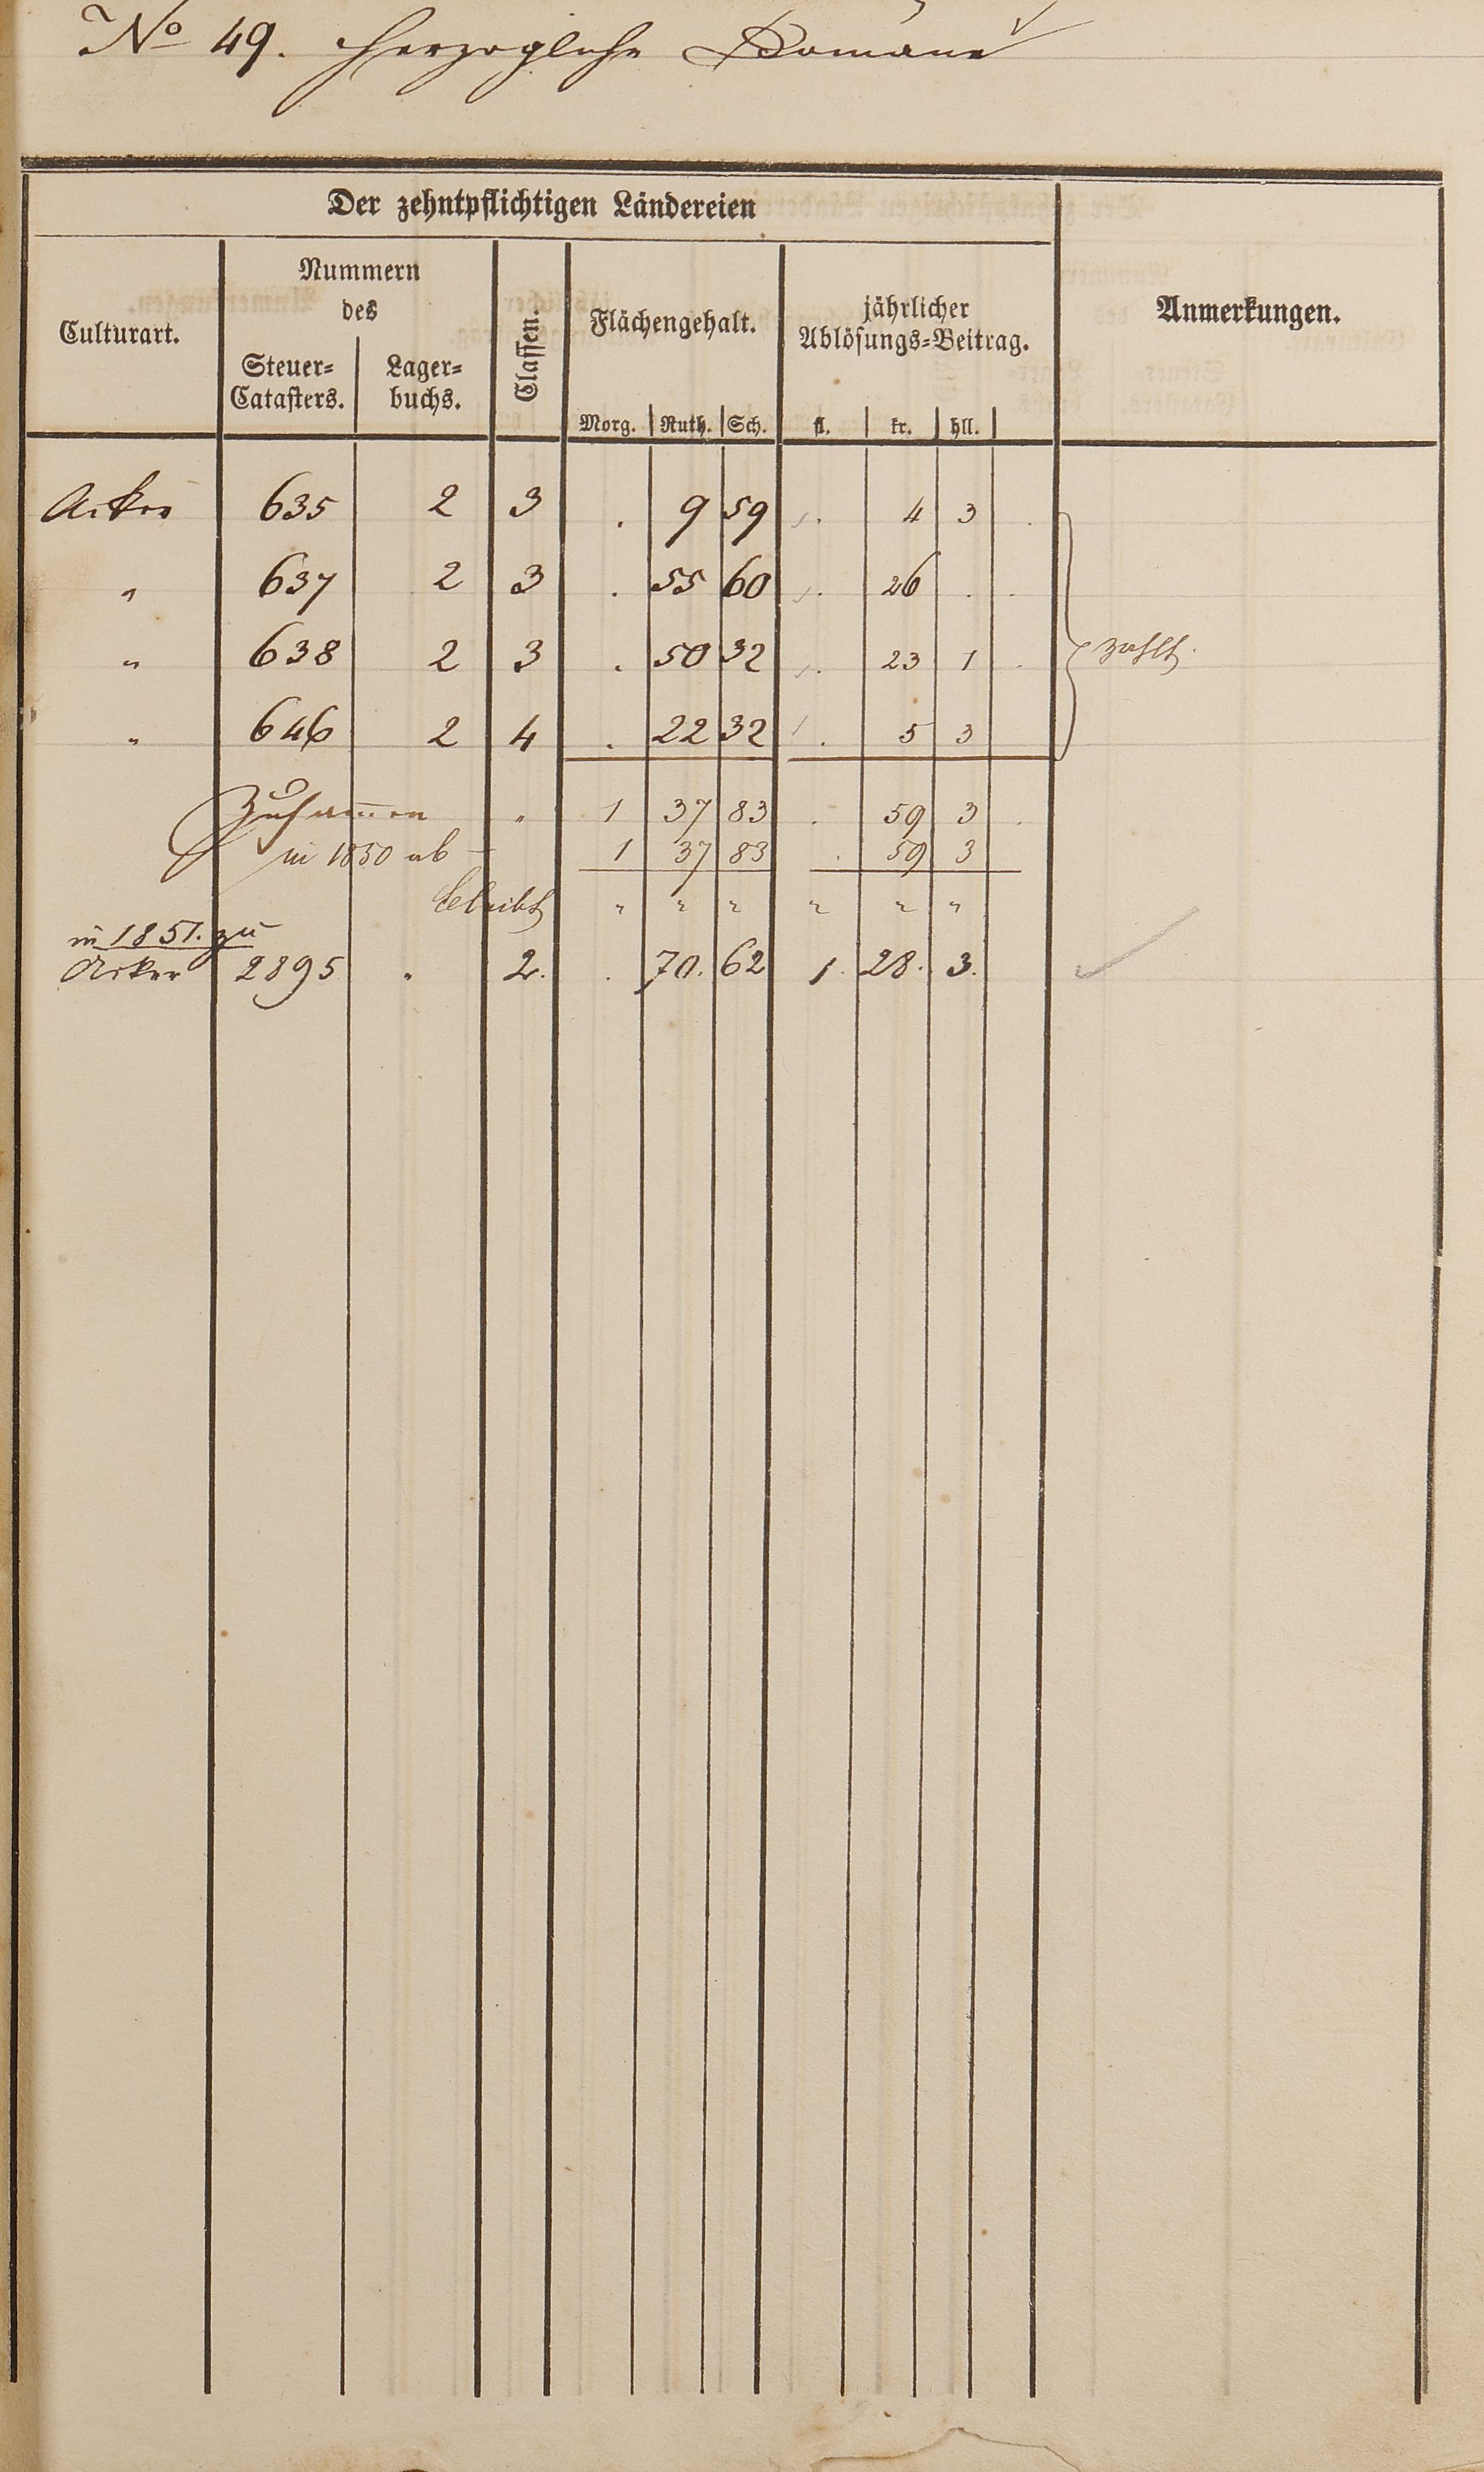 No 49. Herzogliche Domäne
Der zehntpflichtigen Ländereien
Culturart.
Nummern
des
Steuer=
Catasters.
Lager=
buchs.
Classen.
Flächengehalt.
Morg. Ruth. Sch.
jährlicher
Ablösungs=Beitrag.
fl. kr. hll.
Anmerkungen.
Acker 635 2 3 . 9 59 . 4 3 .
" 637 2 3 . 55 60 . 26 . .
" 638 2 3 . 50 32 . 23 1 .
zahlt.
" 646 2 4 . 22 32 . 5 3
Zusam̅en " 1 37 83 . 59 3 .
in 1850 ab – 1 37 83 . 59 3
bleibt " " " " " "
in 1851. zu
Acker 2895 " 2. . 70. 62 1. 28. 3.